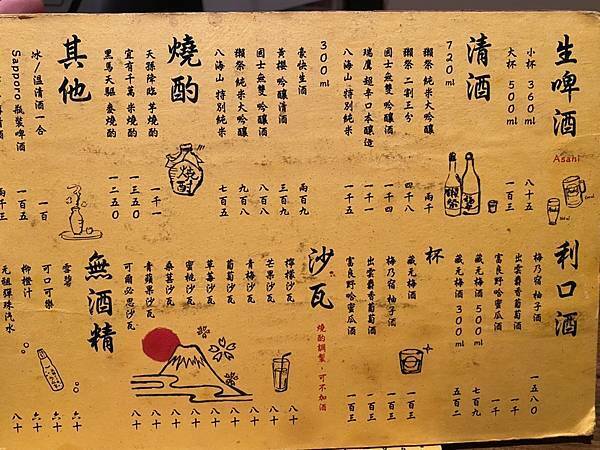 生啤酒
Asahi
小杯 360ml 八十五
大杯 500ml 一百三
清酒
720ml
獺祭 純米大吟釀 兩千
獺祭 二割三分 四千八
國士無雙 吟釀酒 一千四
瑞鷹 超辛口本釀造 一千四
八海山 特別純米 一千五
300ml
豪快生酒 兩百九
黃櫻 吟釀清酒 三百九
國士無雙 吟釀酒 八百八
獺祭 純米大吟釀 九百八
八海山 特別純米 七百五
燒酌
燒酎
天孫降臨 芋燒酌 一千一
宜有千萬 米燒酌 一一五0
黑馬天驅 麥燒酌 一二五0
其他
冰/溫清酒一合 一百
Sapporo 瓶裝啤酒 一百五
清酒 兩千三
獺祭
利口酒
梅乃宿 柚子酒 一五八0
出雲麝香葡萄酒 一千
富良野哈蜜瓜酒 一千
藏元梅酒 500ml 七百九
藏元梅酒 300ml 五百二
杯
藏元梅酒 一百三
梅乃宿 柚子酒 一百三
出雲麝香葡萄酒 一百三
富良野哈蜜瓜酒 一百三
沙瓦
燒酌調製,可不加酒
檸檬沙瓦 八十
芒果沙瓦 八十
青梅沙瓦 八十
葡萄沙瓦 八十
草莓沙瓦 八十
蜜桃沙瓦 八十
桑葚沙瓦 八十
青蘋果沙瓦 八十
可爾必思沙瓦 八十
無酒精
雪碧 六十
可口可樂 六十
柳橙汁 六十
元祖彈珠汽水 八十